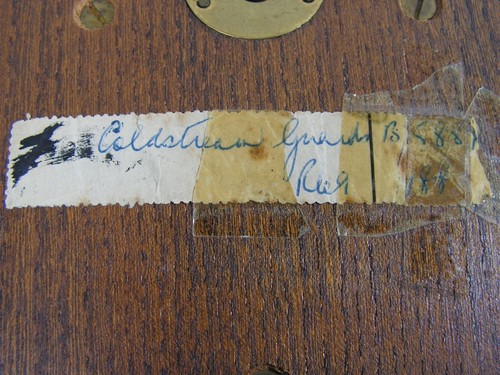 Coldstream Guards B.588
Reg 188